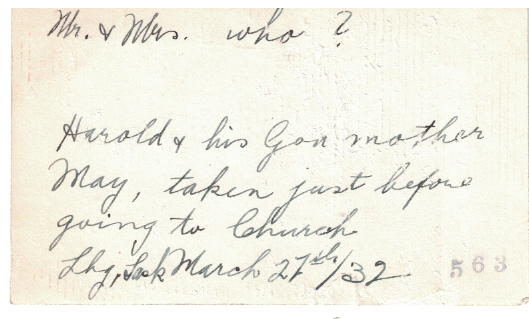 Mr. & Mrs. who?
Harold & his God mother
May, taken just before
going to Church
Lbg, Sask March 27th/32
563